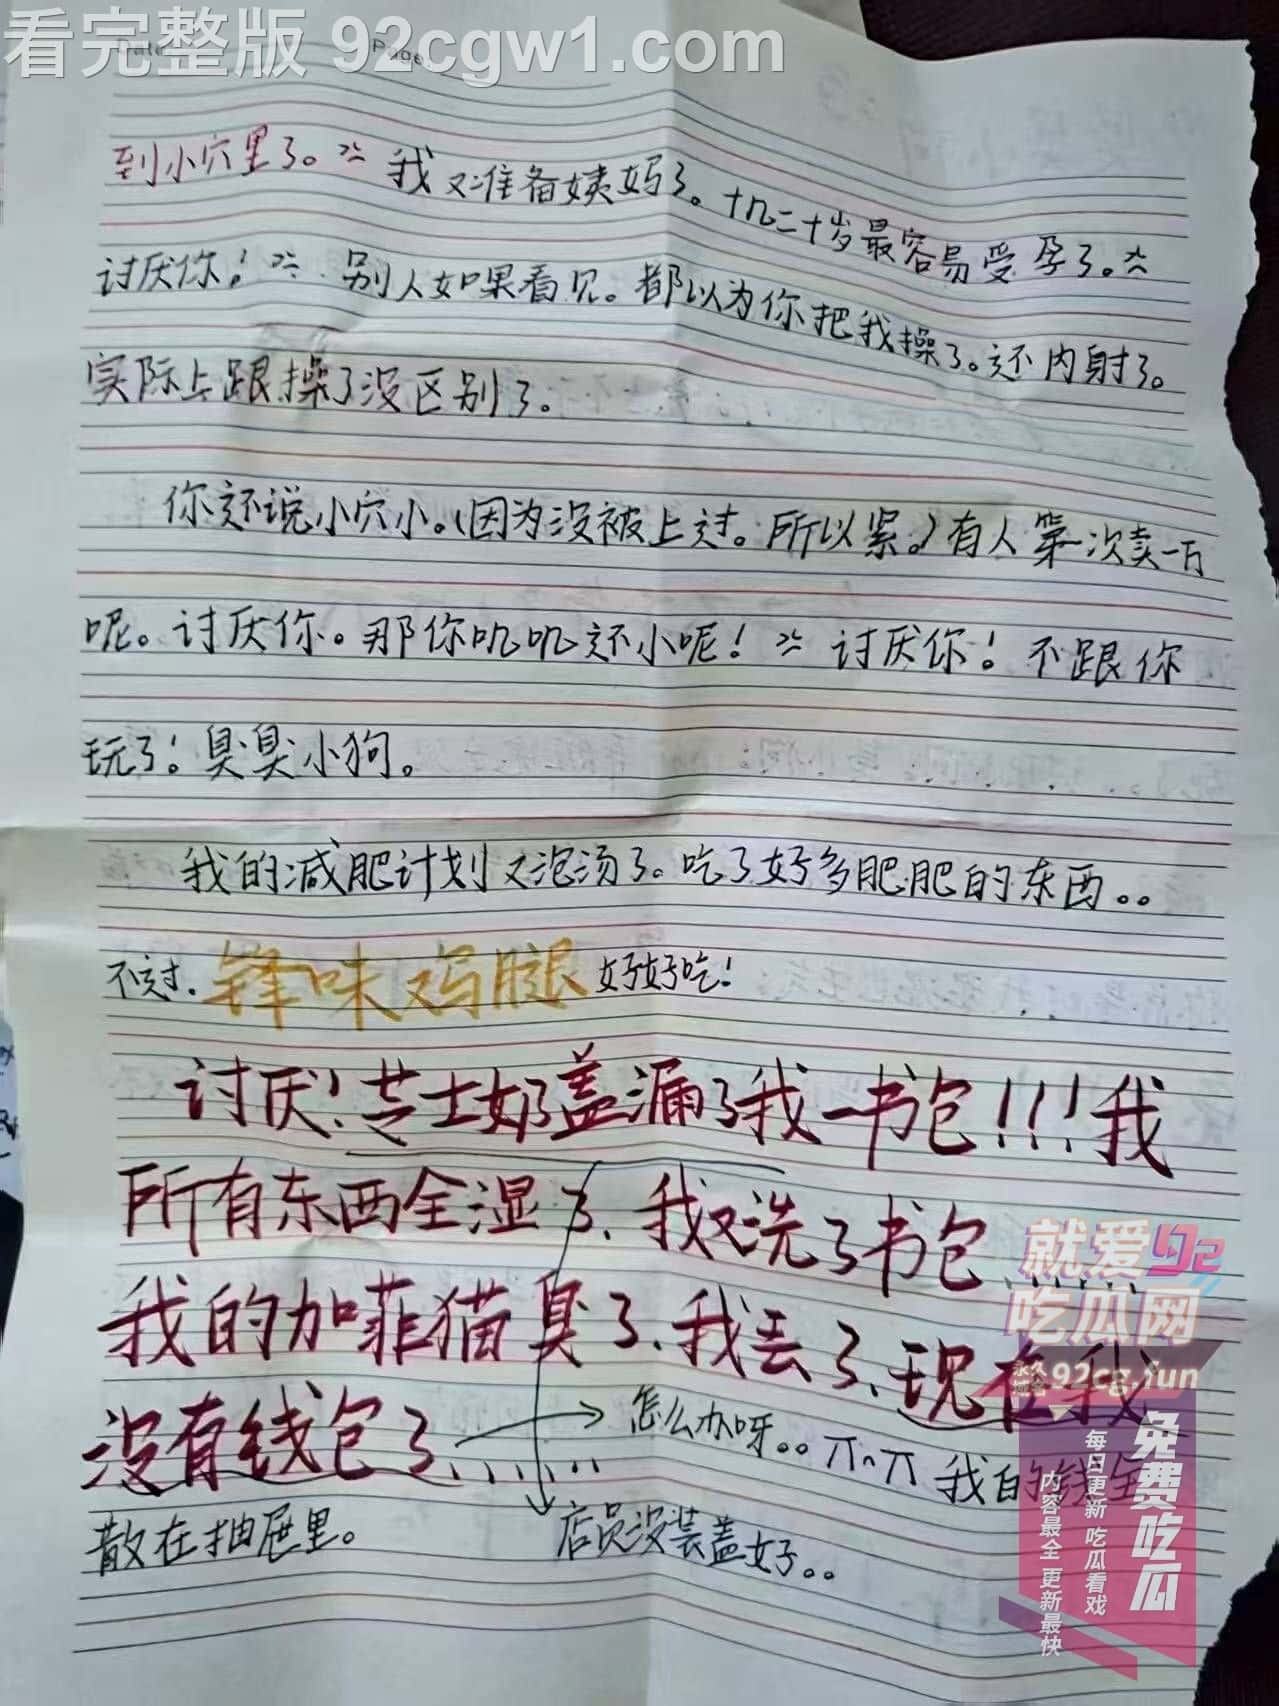 看完整版 92cgw1.com
Date Page
到小穴里了。我又准备姨妈了。十几二十岁最容易受孕了。
讨厌你！别人如果看见。都以为你把我操了。还内射了。
实际上跟操了没区别了。
你还说小穴小。（因为没被上过。所以紧。）有人第一次卖一万
呢。讨厌你。那你叽叽还小呢！讨厌你！不跟你
玩了！臭臭小狗。
我的减肥计划又泡汤了。吃了好多肥肥的东西。。
不过.锋味鸡腿好好吃！
讨厌！芝士奶盖漏了我一书包！！！我
所有东西全湿了、我又洗了书包......
我的加菲猫臭了、我丢了、现在我
没有钱包了......怎么办呀。。π^π 我的钱全
散在抽屉里。
店员没装盖好。。
就爱92
吃瓜网
永久域名 92cg.fun
免费吃瓜
每日更新 吃瓜看戏
内容最全 更新最快